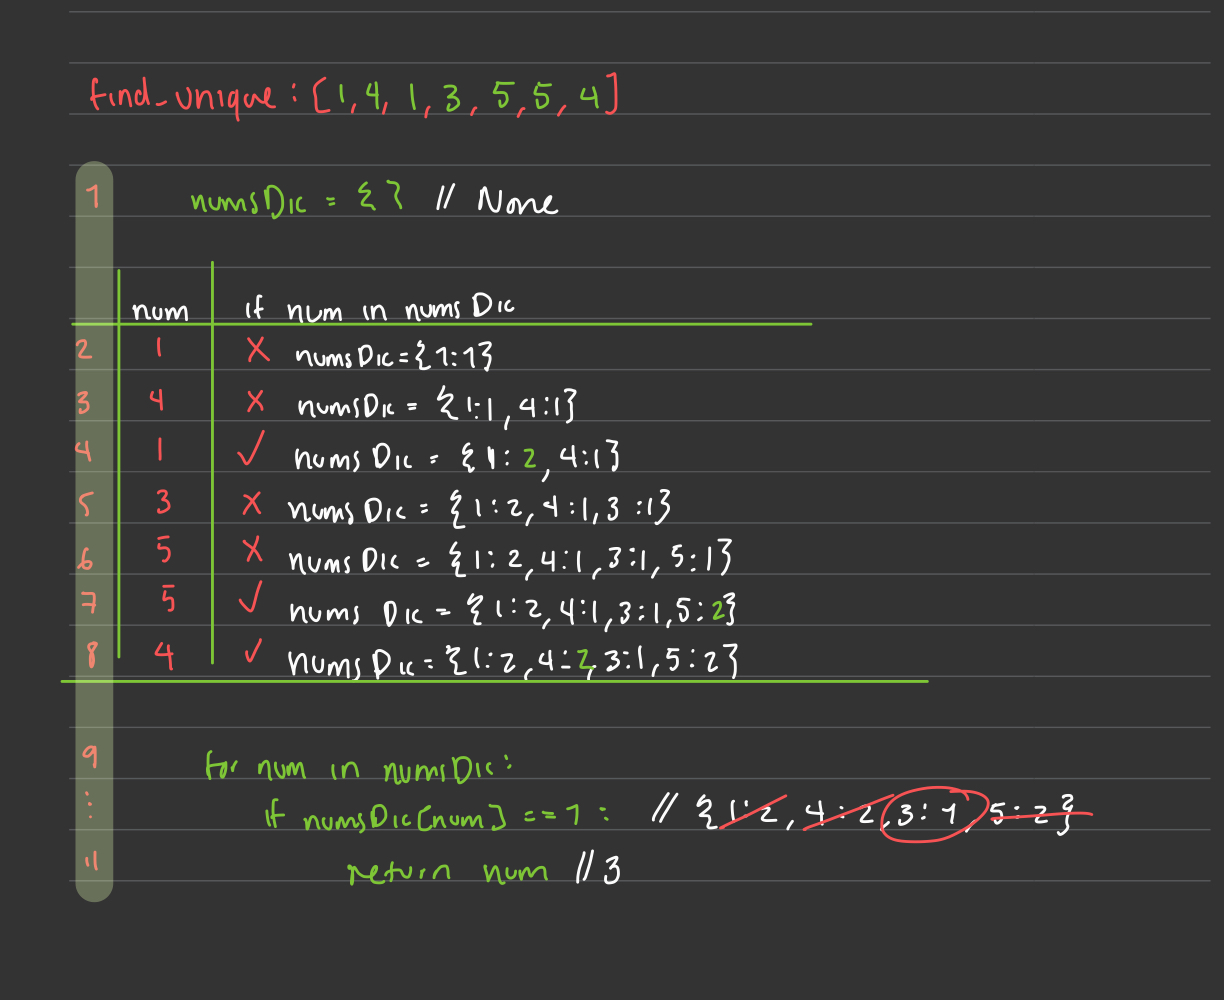 find_unique : [1, 4, 1, 3, 5, 5, 4]
1 numsDic = {} // None
num if num in numsDic
2 1 X numsDic = {1:1}
3 4 X numsDic = {1:1, 4:1}
4 1 ✓ numsDic = {1:2, 4:1}
5 3 X numsDic = {1:2, 4:1, 3:1}
6 5 X numsDic = {1:2, 4:1, 3:1, 5:1}
7 5 ✓ numsDic = {1:2, 4:1, 3:1, 5:2}
8 4 ✓ numsDic = {1:2, 4:2, 3:1, 5:2}
9 for num in numsDic:
⋮ if numsDic[num] == 1 : // {1:2, 4:2, 3:1, 5:2}
11 return num // 3